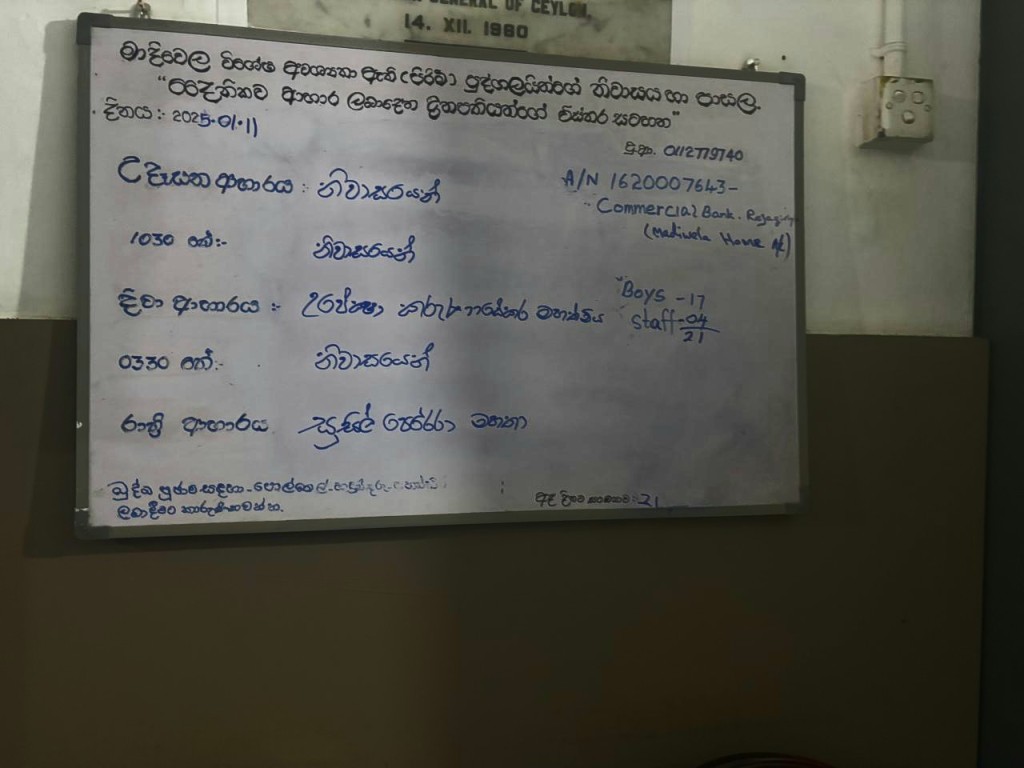 GENERAL OF CEYLON,
14. XII. 1960
මාදිවෙල විශේෂ අවශ්‍යතා ඇති (පිරිමි) පුද්ගලයින්ගේ නිවාසය හා පාසල.
"දෛනිකව ආහාර ලබාදෙන දානපතියන්ගේ විස්තර සටහන"
දිනය :- 2025-01-11
දු.ක. 0112779740
උදෑසන ආහාරය :- නිවාසයෙන්
A/N 1620007643-
Commercial Bank.
(Madiwela Home A/C)
1030 තේ:- නිවාසයෙන්
දිවා ආහාරය :- උපේක්ෂා කරුණාසේකර මහත්මිය
Boys -17
Staff-04
21
0330 තේ:- නිවාසයෙන්
රාත්‍රී ආහාරය සුනිල් පෙරේරා මහතා
බුද්ධ පූජාව සඳහා - පොල්තෙල්-හඳුන්කූරු-
ලබාදීමට කාරුණික වන්න.
21